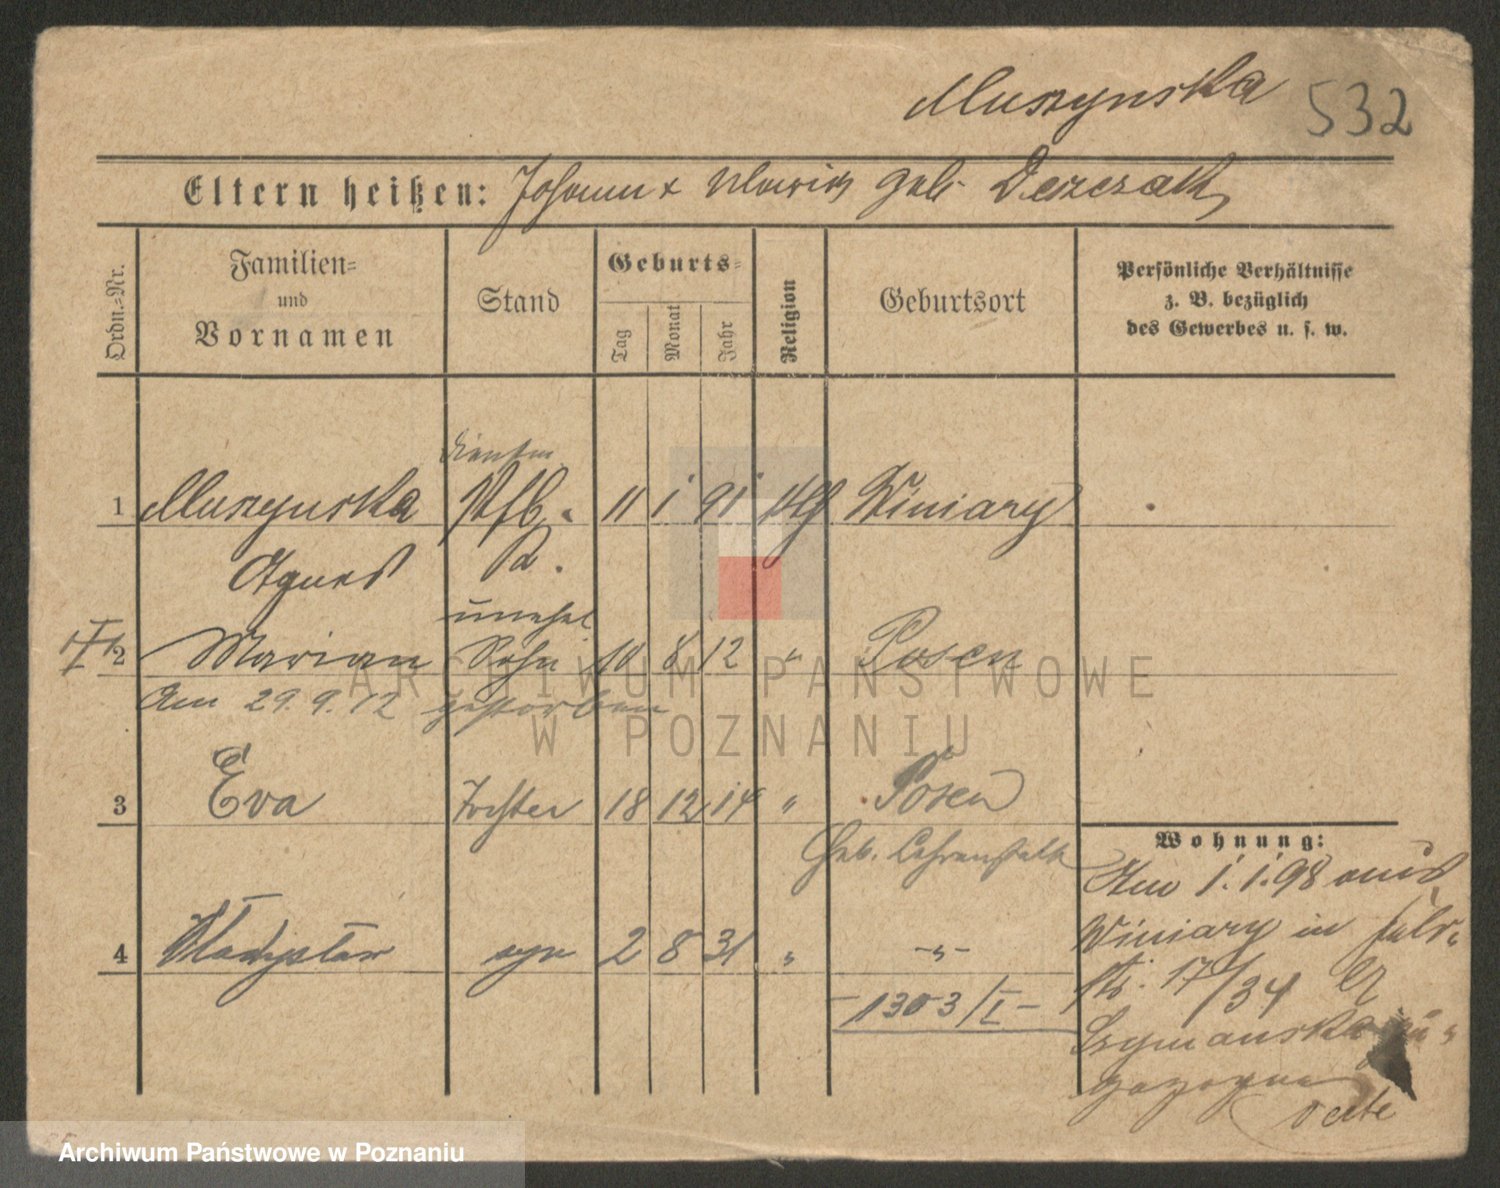 Muszynska 532
Eltern heißen: Johann & Maria geb.
Ordn.-Nr.
Familien-
und
Vornamen
Stand
Geburts-
Tag
Monat
Jahr
Religion
Geburtsort
Persönliche Verhältnisse
z. B. bezüglich
des Gewerbes u. s. w.
1 Muszynska 11 1 91 Winiary
Agnes
unehel
2 Marian Sohn 10 8 12 " Posen
Am 29.9.12 gestorben
3 Eva Tochter 18 12 14 " Posen
Geb.
Wohnung:
Am 1.1.98 aus
Winiary in
4 Władysław 2 8 31 " -"-
17/34
-1303/I-
Szymanska
ARCHIWUM PAŃSTWOWE
W POZNANIU
Archiwum Państwowe w Poznaniu